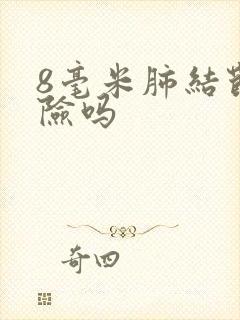 8毫米肺結
險吗
奇四